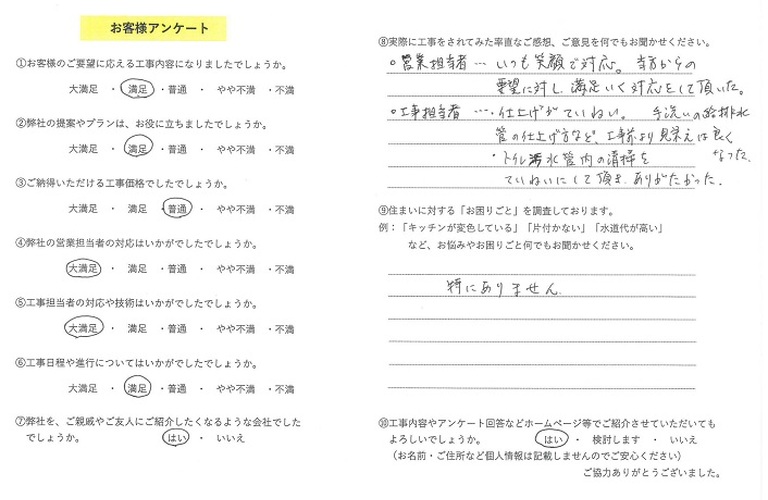 お客様アンケート
①お客様のご要望に応える工事内容になりましたでしょうか。
大満足 ・ 満足 ・普通 ・ やや不満 ・不満
②弊社の提案やプランは、お役に立ちましたでしょうか。
大満足 ・ 満足 ・普通 ・ やや不満 ・不満
③ご納得いただける工事価格でしたでしょうか。
大満足 ・ 満足 ・普通 ・ やや不満 ・不満
④弊社の営業担当者の対応はいかがでしたでしょうか。
大満足 ・ 満足 ・普通 ・ やや不満 ・不満
⑤工事担当者の対応や技術はいかがでしたでしょうか。
大満足 ・ 満足 ・普通 ・ やや不満 ・不満
⑥工事日程や進行についてはいかがでしたでしょうか。
大満足 ・ 満足 ・普通 ・ やや不満 ・不満
⑦弊社を、ご親戚やご友人にご紹介したくなるような会社でした
でしょうか。 はい ・ いいえ
⑧実際に工事をされてみた率直なご感想、ご意見を何でもお聞かせください。
○営業担当者… いつも笑顔で対応。当方からの
要望に対し、満足いく対応をして頂いた。
○工事担当者 …・仕上げがていねい。 手洗いの給排水
管の仕上げ方など、工事前より見栄えは良く
なった。
・トイレ汚水管内の清掃を
ていねいにして頂き、ありがたかった。
⑨住まいに対する「お困りごと」を調査しております。
例：「キッチンが変色している」「片付かない」「水道代が高い」
など、お悩みやお困りごと何でもお聞かせください。
特にありません。
⑩工事内容やアンケート回答などホームページ等でご紹介させていただいても
よろしいでしょうか。 はい ・ 検討します ・ いいえ
（お名前・ご住所など個人情報は記載しませんのでご安心ください）
ご協力ありがとうございました。